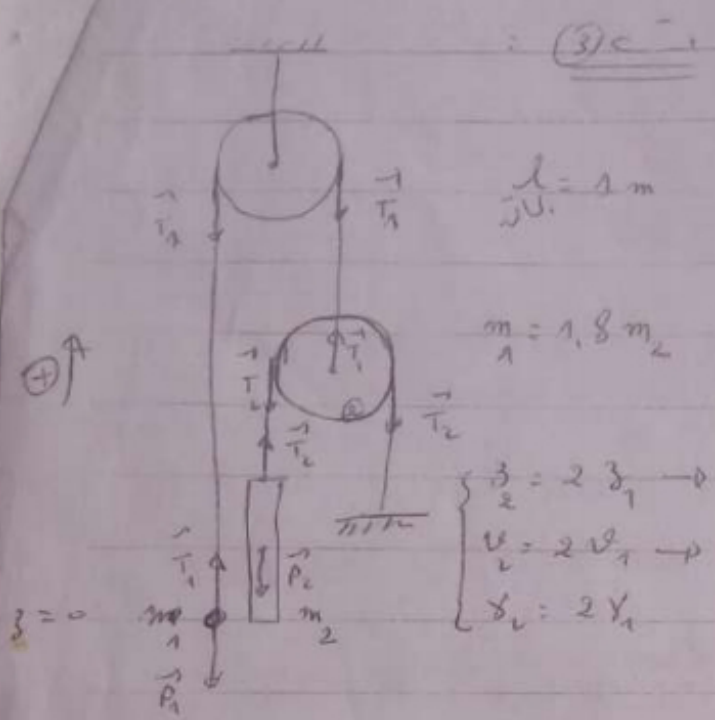 : ③
l = 1 m
T₁ T₁
m₁ = 1,8 m₂
⊕
T₁
T₂ T₂
② T₂
z₂ = 2 z₁ →
v₂ = 2 v₁ →
γ₂ = 2 γ₁
T₁ P₂
z = 0 m₁ m₂
P₁